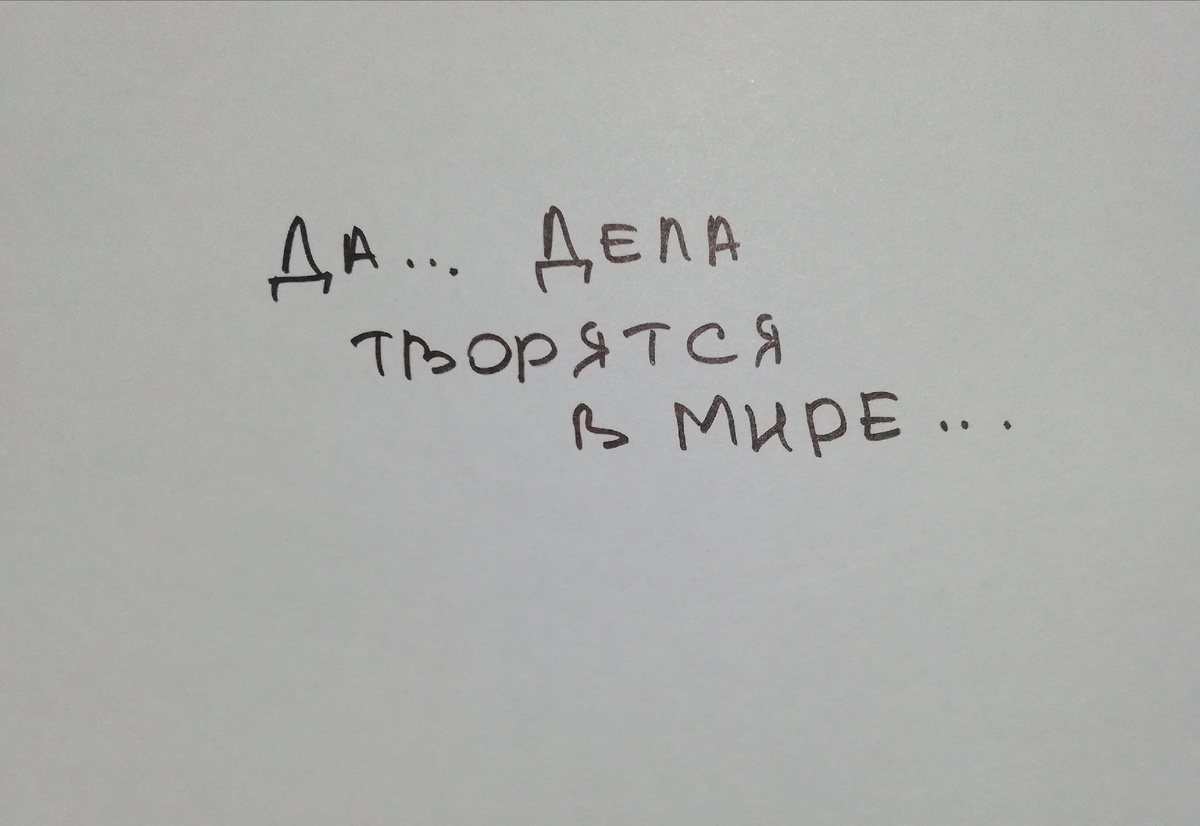 Да... Дела
творятся
в мире...